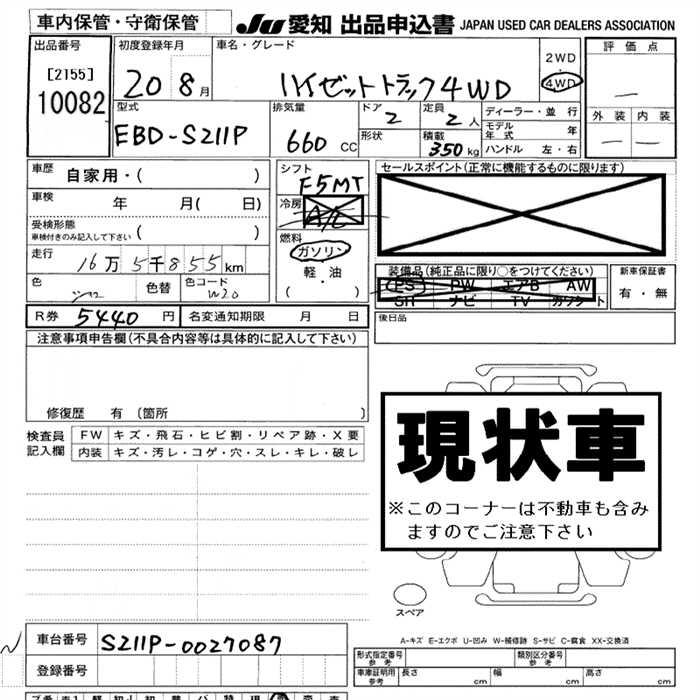 車内保管・守衛保管
JU 愛知 出品申込書 JAPAN USED CAR DEALERS ASSOCIATION
出品番号 初度登録年月 車名・グレード 評価点
[2155]
10082
20 8月 ハイゼットトラック4WD
2WD
4WD
型式 排気量 ドア 定員 ディーラー・並行
EBD-S211P 660 CC 2 2人
モデル年式 年
形状 積載 350kg ハンドル 左・右
外装 内装
車歴 自家用・( )
車検 年 月( 日)
受検形態
車検付きのみ記入して下さい ( )
走行 16万5千855km
色 色替 色コード W20
シフト F5MT
冷房 A/C
燃料
ガソリン
軽・油
( )
セールスポイント(正常に機能するものに限ります)
装備品(純正品に限り○をつけてください) 新車保証書
PS PW エアB AW
SR ナビ TV カワシート
有・無
後日品
R券 5440円 名変通知期限 月 日
注意事項申告欄(不具合内容等は具体的に記入して下さい)
修復歴 有〔箇所 〕
検査員記入欄
FW キズ・飛石・ヒビ割・リペア跡・X要
内装 キズ・汚レ・コゲ・穴・スレ・キレ・破レ
現状車
※このコーナーは不動車も含み
ますのでご注意下さい
スペア
A-キズ E-エクボ U-凹み W-補修跡 S-サビ C-腐食 XX-交換済
車台番号 S211P-0027087
登録番号
形式指定番号 参考 類別区分番号 参考
車庫証明用 参考 長さ cm 幅 cm 高さ cm